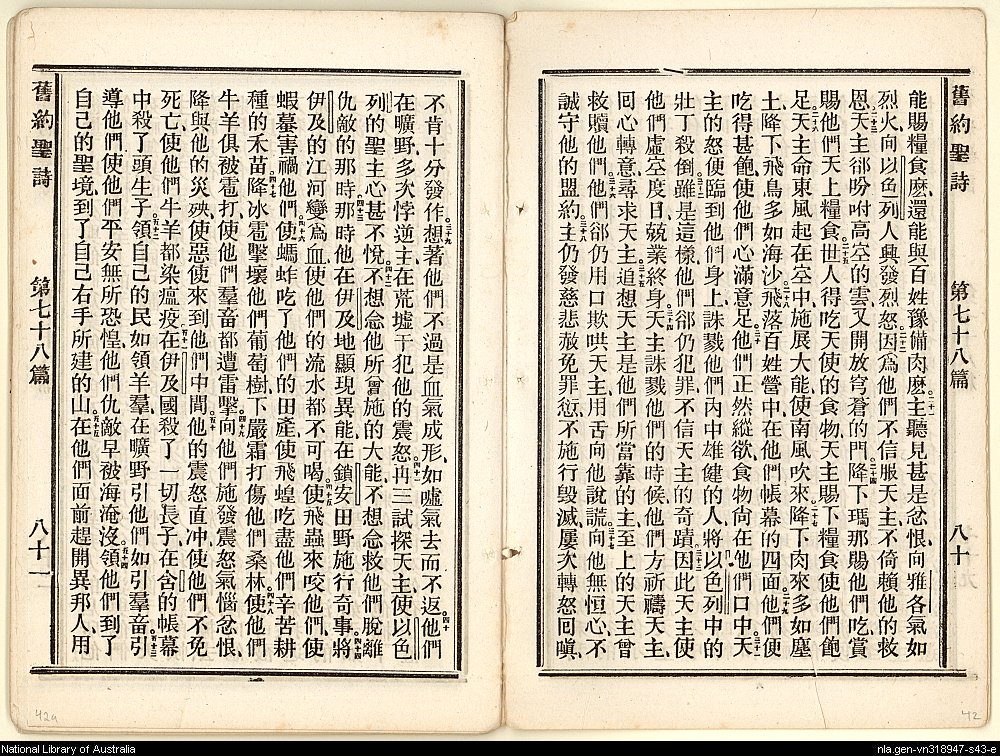 舊約聖詩　第七十八篇　八十
能賜糧食麽、還能與百姓豫備肉麽、二十一主聽見甚是忿恨、向雅各氣如
烈火、向以色列人興發烈怒、二十二因爲他們不信服天主、不倚賴他的救
恩、二十三天主郤吩咐高空的雲、又開放穹蒼的門、二十四降下瑪那賜他們吃、賞
賜他們天上糧食、二十五世人得吃天使的食物、天主賜下糧食使他們飽
足、二十六天主命東風起在空中、施展大能使南風吹來、二十七降下肉來多如塵
土、降下飛鳥多如海沙、二十八飛落百姓營中、在他們帳幕的四面、二十九他們便
吃得甚飽、使他們心滿意足、三十他們正然縱欲、食物尙在他們口中、三十一天
主的怒便臨到他們身上、誅戮他們內中雄健的人、將以色列中的
壯丁殺倒、三十二雖是這樣、他們郤仍犯罪、不信天主的奇蹟、三十三因此天主使
他們虛空度日、兢業終身、三十四天主誅戮他們的時候、他們方祈禱天主、
回心轉意、尋求天主、三十五追想天主是他們所當靠的主、至上的天主曾
救贖他們、三十六他們郤仍用口欺哄天主、用舌向他說謊、三十七向他無恒心、不
誠守他的盟約、三十八主仍發慈悲、赦免罪愆、不施行毀滅、屢次轉怒回嗔、
不肯十分發作、三十九想著他們不過是血氣成形、如噓氣去而不返、四十他們
在曠野多次悖逆主、在荒墟干犯他的震怒、四十一再三試探天主、使以色
列的聖主心甚不悅、四十二不想念他所曾施的大能、不想念救他們脫離
仇敵的那時、四十三那時他在伊及地顯現異能、在鎖安田野施行奇事、四十四將
伊及的江河變爲血、使他們的流水都不可喝、四十五使飛蟲來咬他們、使
蝦蟇害禍他們、四十六使螞蚱吃了他們的田產、使飛蝗吃盡他們辛苦耕
種的禾苗、四十七降冰雹擊壞他們葡萄樹、下嚴霜打傷他們桑林、四十八使他們
牛羊俱被雹打、使他們羣畜都遭雷擊、四十九向他們施發震怒氣惱忿恨、
降與他的災殃、使惡使來到他們中間、五十他的震怒直冲、使他們不免
死亡、使他們牛羊都染瘟疫、五十一在伊及國殺了一切長子、在含的帳幕
中殺了頭生子、五十二領自己的民如領羊羣、在曠野引他們如引羣畜、五十三引
導他們使他們平安、無所恐惶、他們仇敵早被海淹沒、五十四領他們到了
自己的聖境、到了自己右手所建的山、五十五在他們面前趕開異邦人、用
舊約聖詩　第七十八篇　八十一
42a
42
National Library of Australia
nla.gen-vn318947-s43-e